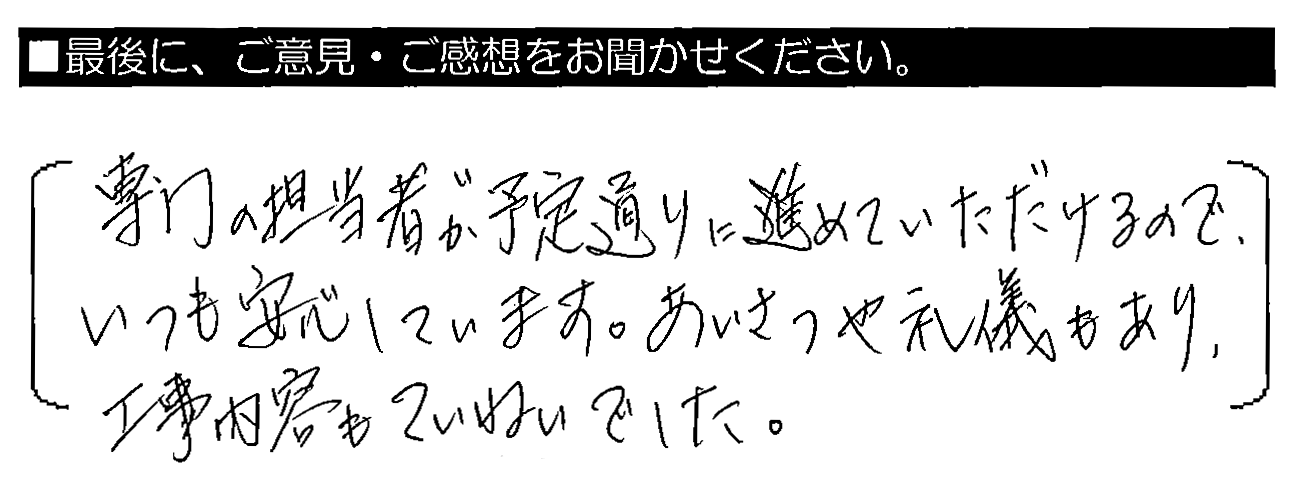 ■最後に、ご意見・ご感想をお聞かせください。
専門の担当者が予定通りに進めていただけるので、
いつも安心しています。あいさつや礼儀もあり、
工事内容もていねいでした。